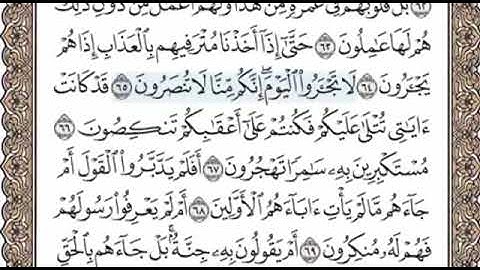 ٦٢ بَلْ قُلُوبُهُمْ فِى غَمْرَةٍ مِّنْ هَٰذَا وَلَهُمْ أَعْمَٰلٌ مِّن دُونِ ذَٰلِكَ
هُمْ لَهَا عَٰمِلُونَ ٦٣ حَتَّىٰٓ إِذَآ أَخَذْنَا مُتْرَفِيهِم بِٱلْعَذَابِ إِذَا هُمْ
يَجْـَٔرُونَ ٦٤ لَا تَجْـَٔرُوا۟ ٱلْيَوْمَ ۖ إِنَّكُم مِّنَّا لَا تُنصَرُونَ ٦٥ قَدْ كَانَتْ
ءَايَٰتِى تُتْلَىٰ عَلَيْكُمْ فَكُنتُمْ عَلَىٰٓ أَعْقَٰبِكُمْ تَنكِصُونَ ٦٦
مُسْتَكْبِرِينَ بِهِۦ سَٰمِرًا تَهْجُرُونَ ٦٧ أَفَلَمْ يَدَّبَّرُوا۟ ٱلْقَوْلَ أَمْ
جَآءَهُم مَّا لَمْ يَأْتِ ءَابَآءَهُمُ ٱلْأَوَّلِينَ ٦٨ أَمْ لَمْ يَعْرِفُوا۟ رَسُولَهُمْ
فَهُمْ لَهُۥ مُنكِرُونَ ٦٩ أَمْ يَقُولُونَ بِهِۦ جِنَّةٌۢ ۚ بَلْ جَآءَهُم بِٱلْحَقِّ